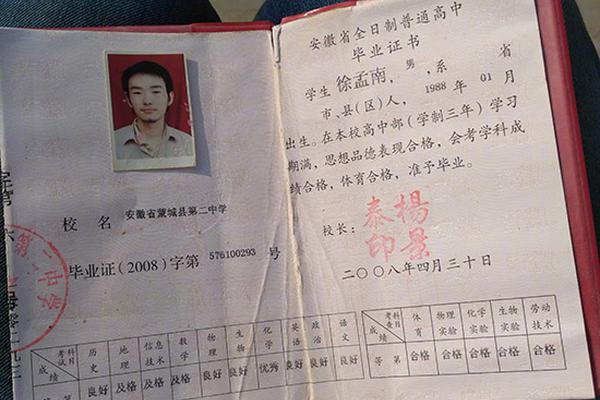 校名 安徽省蒙城县第二中学
毕业证(2008)字第 576100293 号
第二中学
考试科目 历史 地理 信息技术 数学 物理 生物 化学 英语 政治 语文
成绩 良好 及格 及格 及格 良好 良好 优秀 良好 良好 良好
安徽省全日制普通高中
毕业证书
学生 徐孟南，男，系 省
市、县(区)人，1988 年 01 月
出生。在本校高中部(学制三年)学习
期满，思想品德表现合格，会考学科成
绩合格，体育合格，准予毕业。
校长：
杨景
泰印
二〇〇八年四月三十日
考查科目 体育 物理实验 化学实验 生物实验 劳动技术
成绩 等第 合格 合格 合格 合格 合格